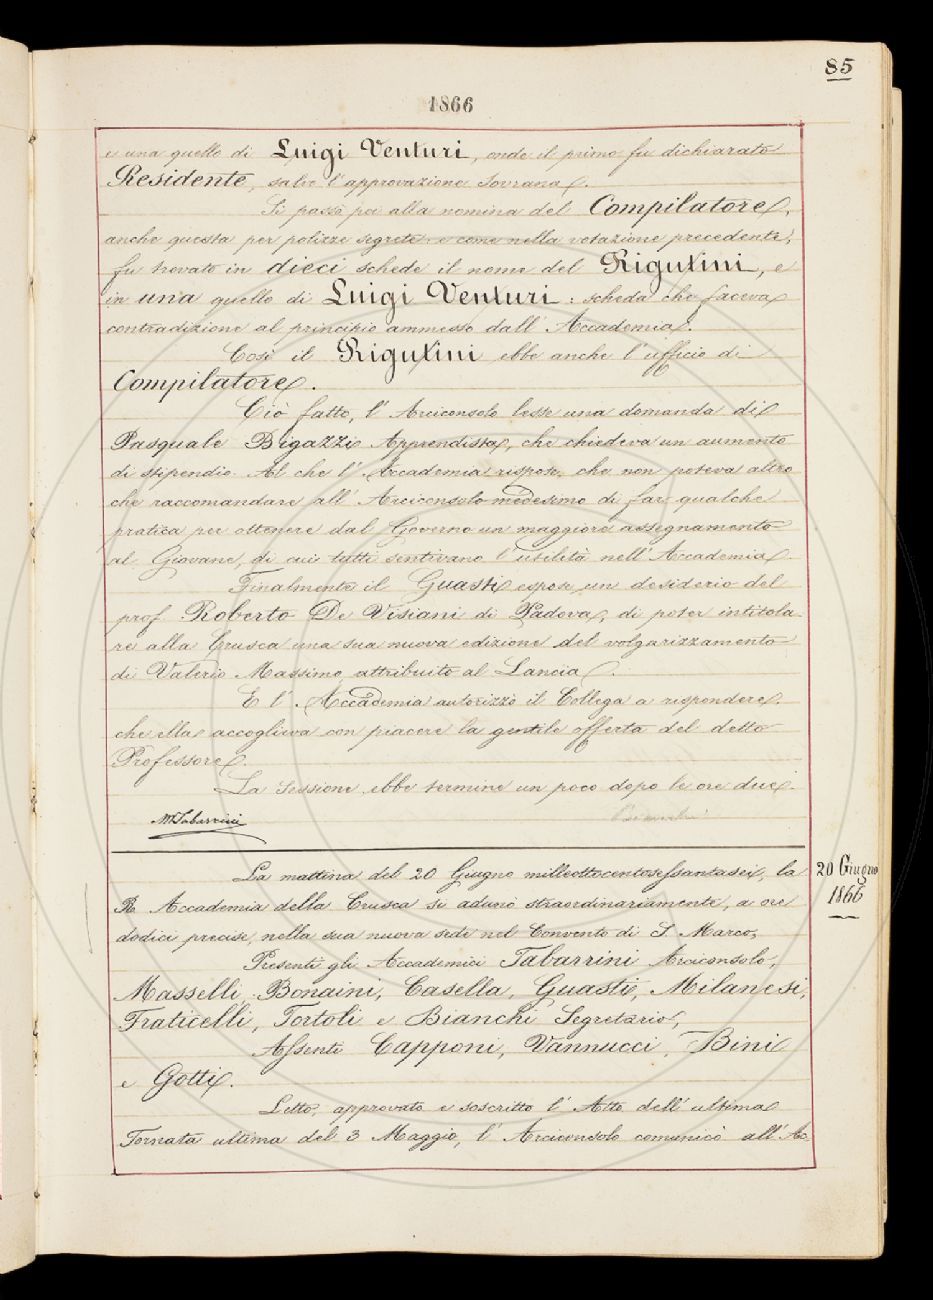 85
1866
e una quello di Luigi Venturi, onde il primo fu dichiarato
Residente, salvo l'approvazione Sovrana.
Si passò poi alla nomina del Compilatore,
anche questa per polizze segrete: e come nella votazione precedente,
fu trovato in dieci schede il nome del Rigutini, e
in una quello di Luigi Venturi: scheda che faceva
contradizione al principio ammesso dall'Accademia.
Così il Rigutini ebbe anche l'ufficio di
Compilatore.
Ciò fatto, l'Arciconsolo lesse una domanda di
Pasquale Bigazzi Apprendista, che chiedeva un aumento
di stipendio. Al che l'Accademia rispose, che non poteva altro
che raccomandare all'Arciconsolo medesimo di far qualche
pratica per ottenere dal Governo un maggiore assegnamento
al Giovane, di cui tutti sentivano l'utilità nell'Accademia
Finalmente il Guasti espose un desiderio del
prof. Roberto De Visiani di Padova, di poter intitola-
re alla Crusca una sua nuova edizione del volgarizzamento
di Valerio Massimo attribuito al Lancia.
E l'Accademia autorizzò il Collega a rispondere,
che ella accoglieva con piacere la gentile offerta del detto
Professore.
La Sessione ebbe termine un poco dopo le ore due.
M. Tabarrini
Bianchi
20 Giugno
1866
La mattina del 20 Giugno milleottocentosessantasei, la
R. Accademia della Crusca si adunò straordinariamente, a ore
dodici precise, nella sua nuova sede nel Convento di S. Marco,
Presenti gli Accademici Tabarrini Arciconsolo,
Masselli, Bonaini, Casella, Guasti, Milanesi,
Fraticelli, Tortoli e Bianchi Segretario,
Assenti Capponi, Vannucci, Bini
e Gotti.
Letto, approvato e soscritto l'Atto dell'ultima
Tornata ultima del 3 Maggio, l'Arciconsolo comunicò all'Ac-